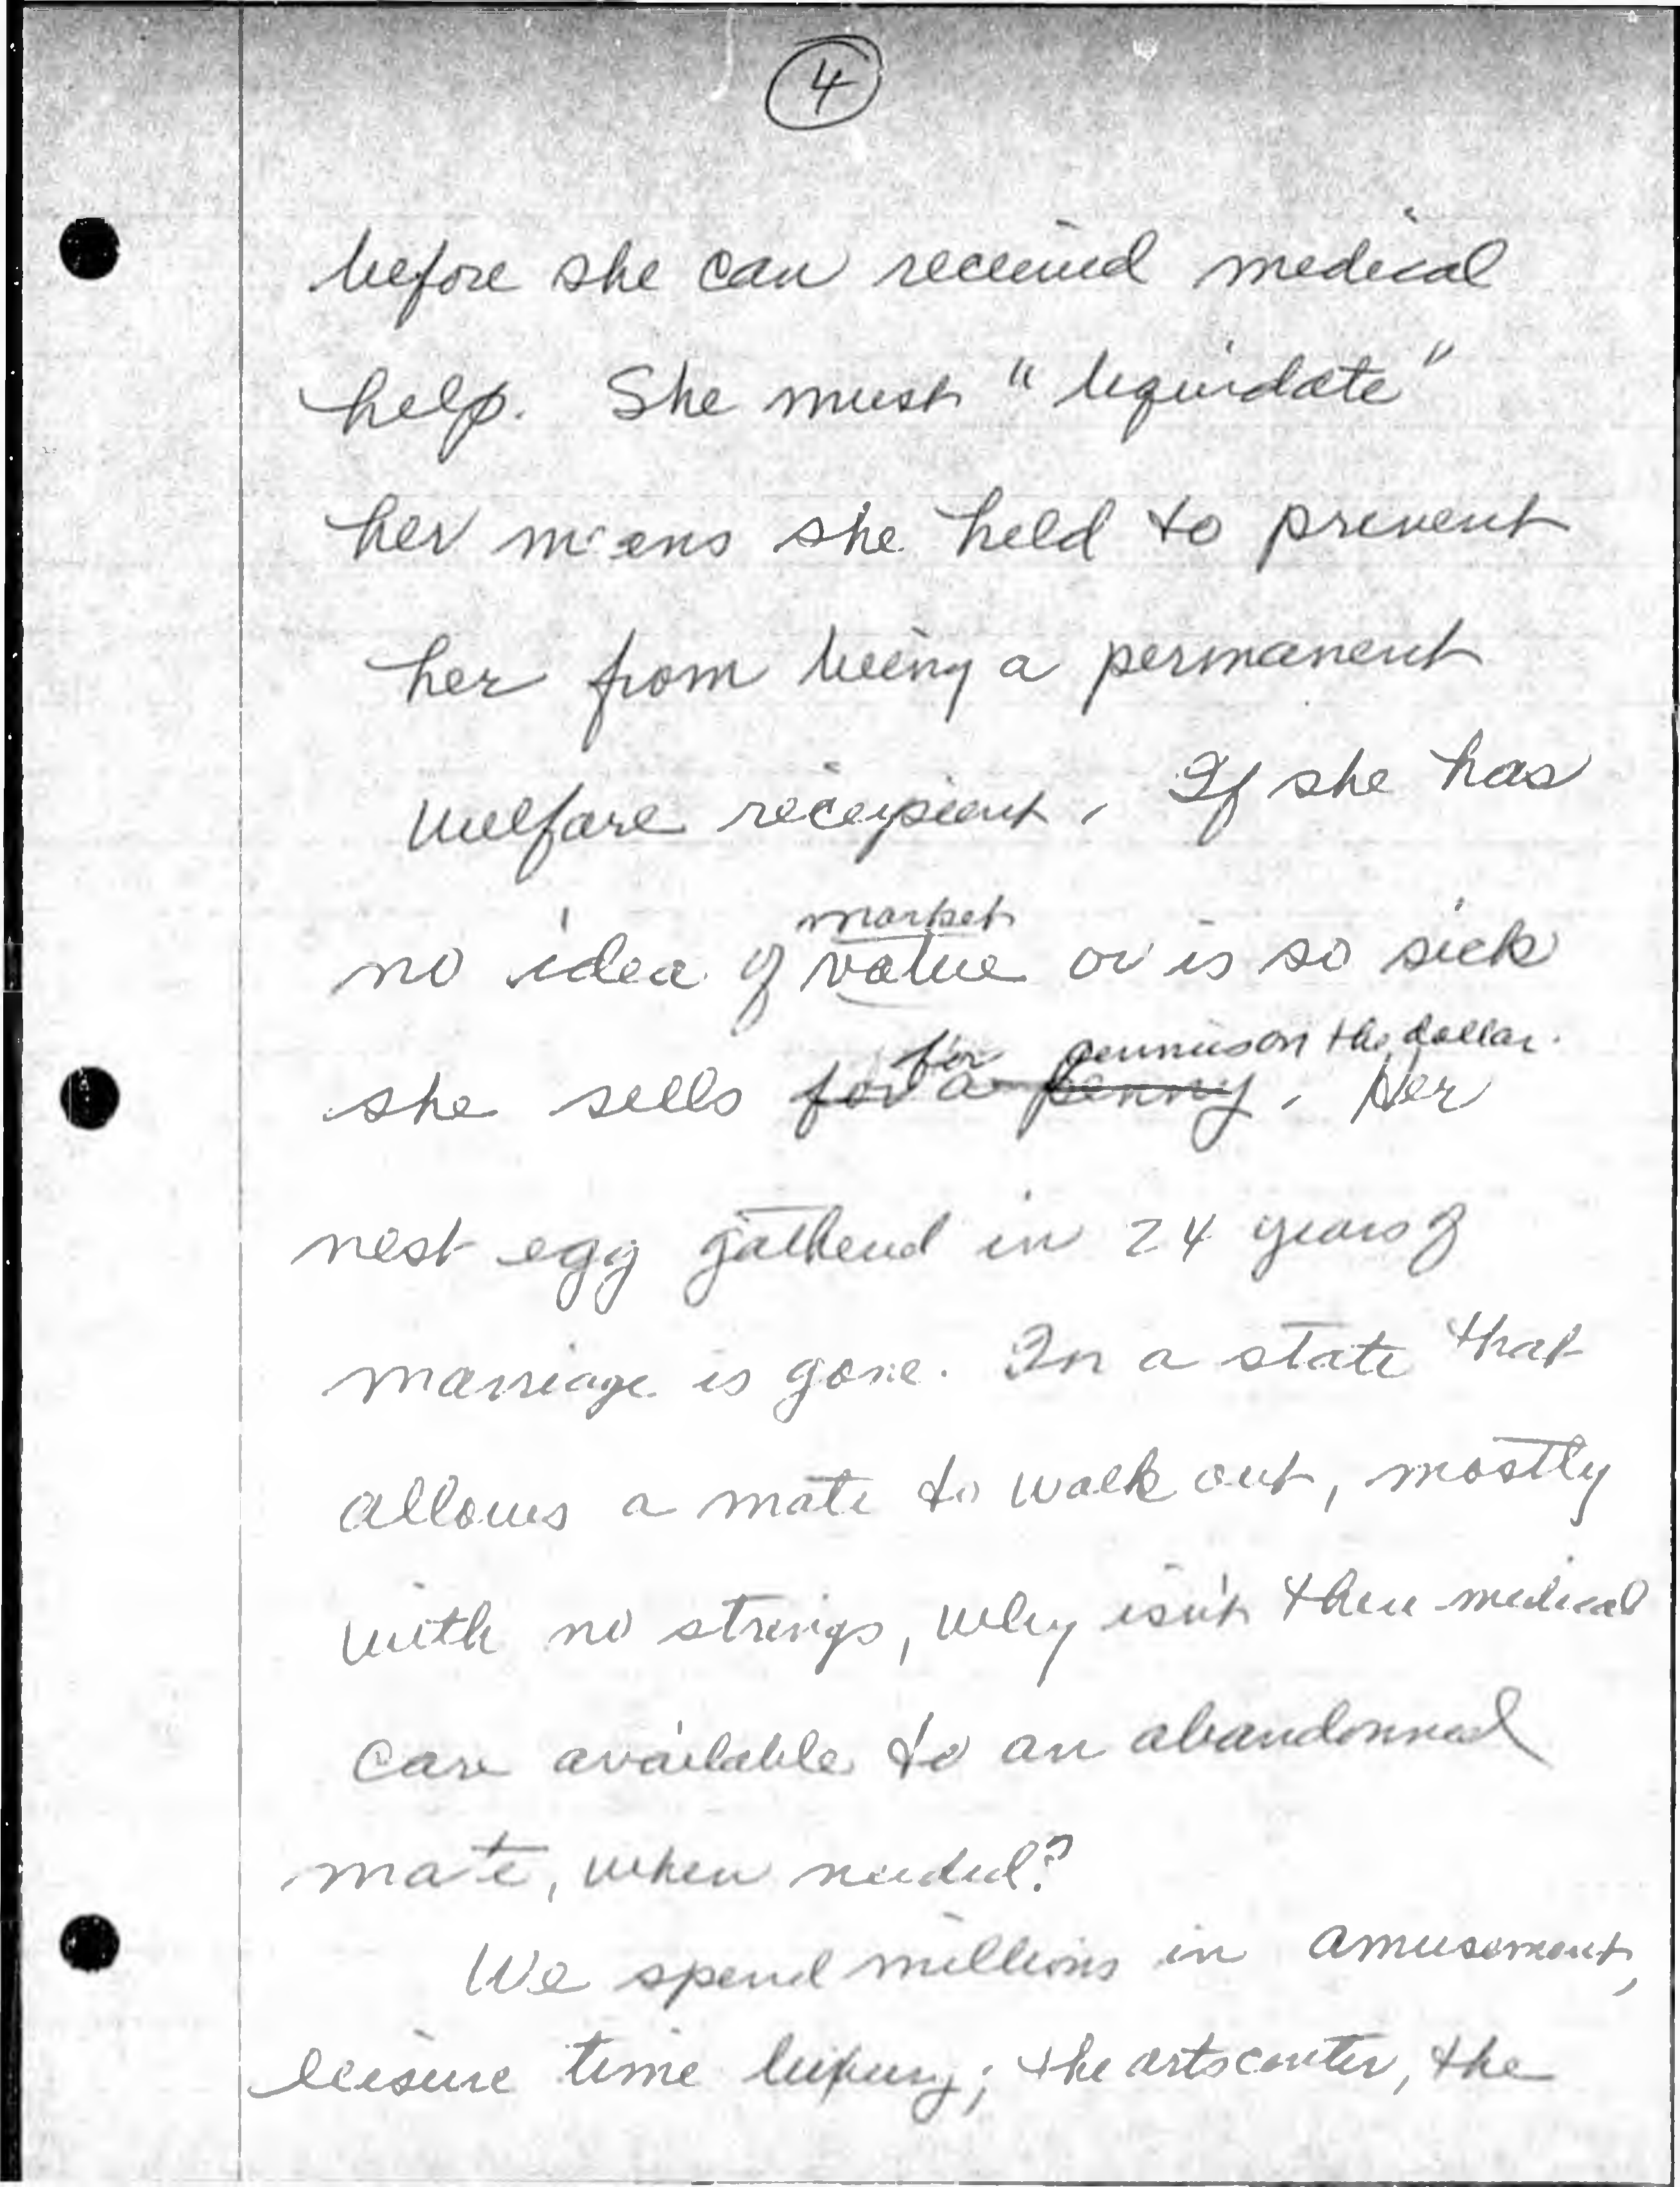 4
before she can received medical
help. She must "liquidate"
her means she held to prevent
her from being a permanent
welfare recipient. If she has
market
no idea of value or is so sick
for pennies on the dollar.
she sells for a penny. Her
nest egg gathered in 24 years of
marriage is gone. In a state that
allows a mate to walk out, mostly
with no strings, why isn't there medical
care available to an abandonned
mate, when needed?
We spend millions in amusement,
leisure time luxury; the arts center, the